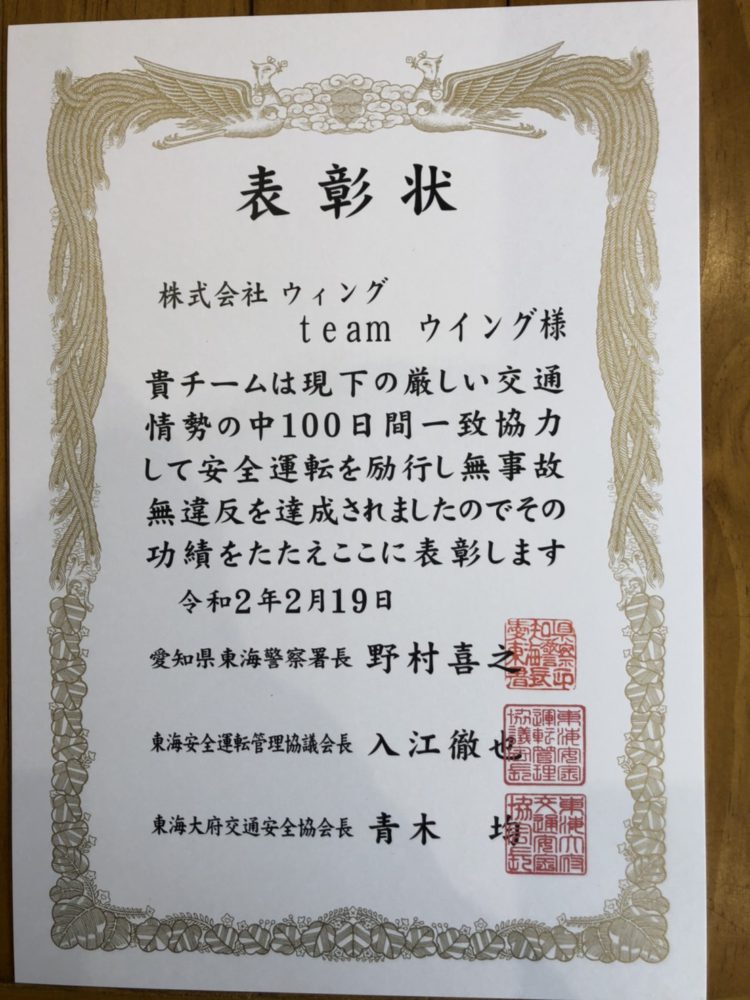 表彰状
株式会社 ウィング
team ウイング様
貴チームは現下の厳しい交通
情勢の中100日間一致協力
して安全運転を励行し無事故
無違反を達成されましたのでその
功績をたたえここに表彰します
令和2年2月19日
愛知県東海警察署長 野村喜之
東海安全運転管理協議会長 入江徹也
東海大府交通安全協会長 青木 均